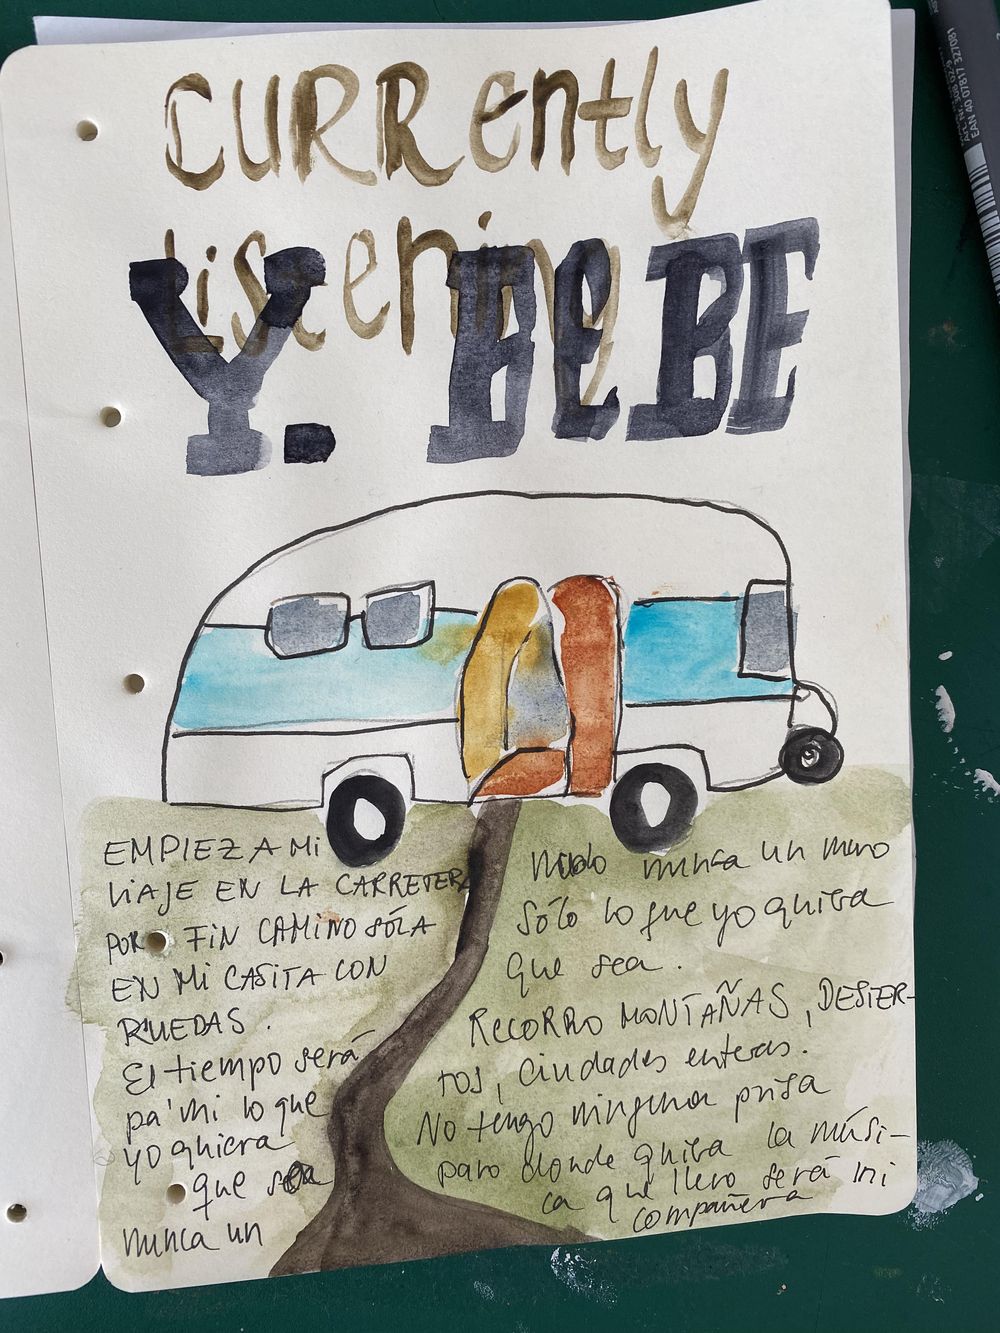 CURRently
Listening
Y. BeBE
EMPIEZA Mi
VIAJE EN LA CARRETERA
POR FIN CAMINO SÓLA
EN Mi CASITA CON
RUEDAS.
El tiempo será
pa' mi lo que
yo quiera
que sea
nunca un
nudo nunca un muro
sólo lo que yo quiera
que sea.
RECORRO MONTAÑAS, DESIER-
TOS, Ciudades enteras.
No tengo ninguna prisa
paro donde quiera la músi-
ca que llevo será mi
compañera
Art. Nr. 308 029
EAN 40 07817 327081